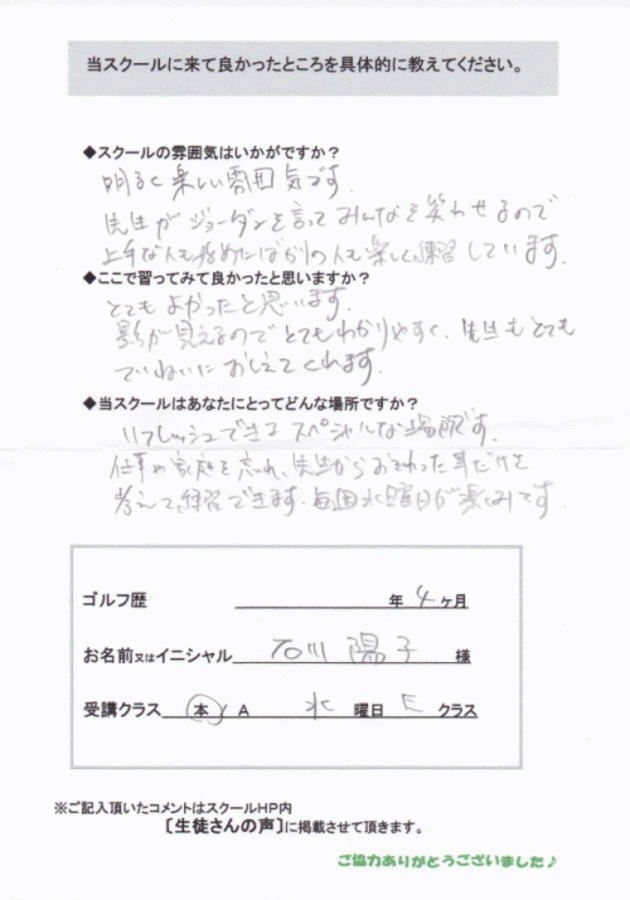 当スクールに来て良かったところを具体的に教えてください。
◆スクールの雰囲気はいかがですか？
明るく楽しい雰囲気です.
先生がジョーダンを言ってみんなを笑わせるので
上手な人も始めたばかりの人も楽しく練習しています.
◆ここで習ってみて良かったと思いますか？
とてもよかったと思います.
影が見えるのでとてもわかりやすく、先生もとても
ていねいにおしえてくれます.
◆当スクールはあなたにとってどんな場所ですか？
リフレッシュできるスペシャルな場所です.
仕事や家庭を忘れ、先生からおそわった事だけを
考えて練習できます.毎週水曜日が楽しみです.
ゴルフ歴 年 4 ヶ月
お名前又はイニシャル 石川 陽子 様
受講クラス 本 / A 水 曜日 E クラス
※ご記入頂いたコメントはスクールHP内
〔生徒さんの声〕に掲載させて頂きます。
ご協力ありがとうございました♪